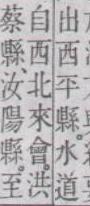 出西平縣。水道
自西北來會。洪
蔡縣、汝陽縣。至